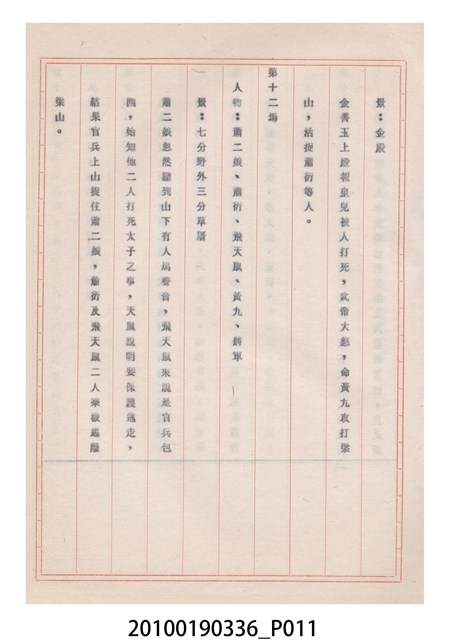 景：金殿
金善玉上殿報皇兒被人打死，武帝大怒，命黃九攻打梁
山，活捉蕭衍等人。
第十二場
人物：蕭二娘、蕭衍、飛天鼠、黃九、將軍
景：七分野外三分草厝
蕭二娘忽然聽到山下有人馬聲音，飛天鼠來說是官兵包
圍，始知他二人打死太子之事，天鼠說明要保護逃走，
結果官兵上山捉住蕭二娘，蕭衍及飛天鼠二人乘機逃離
梁山。
20100190336_P011